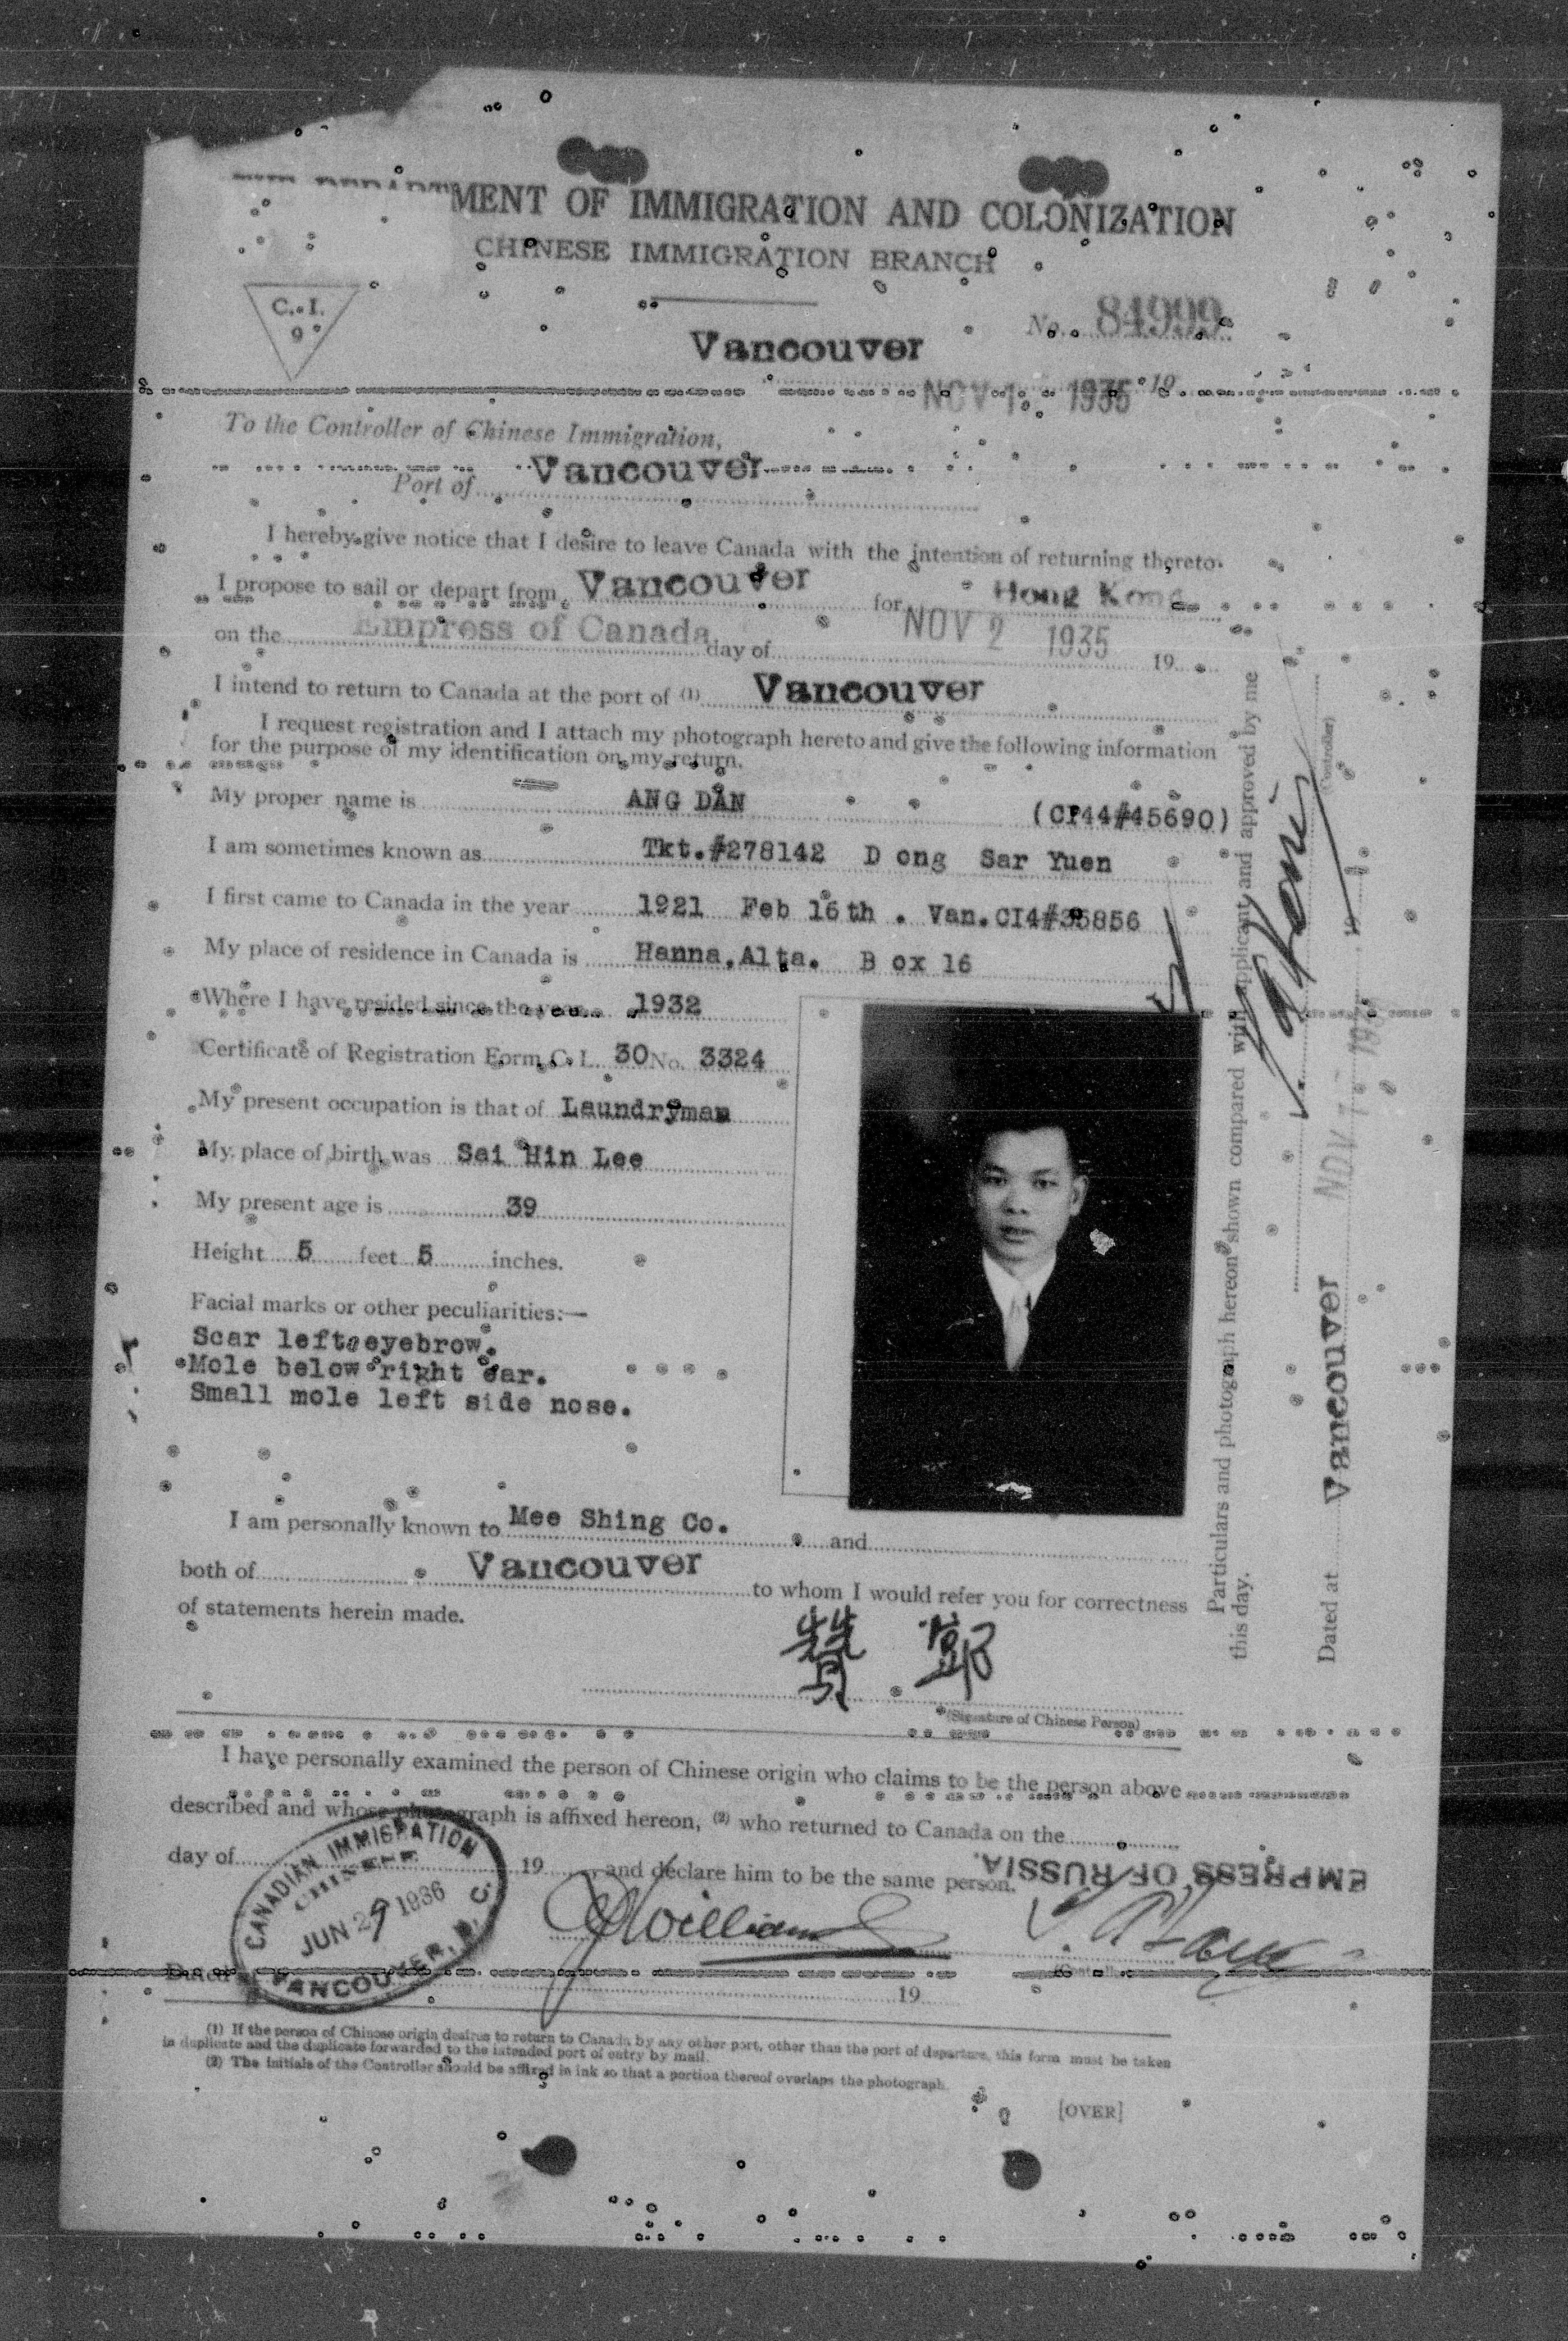 MENT OF IMMIGRATION AND COLONIZATION
CHINESE IMMIGRATION BRANCH
C. I.
9
No. 84999
Vancouver
NOV 1 1935 19
To the Controller of Chinese Immigration,
Port of Vancouver
I hereby give notice that I desire to leave Canada with the intention of returning thereto.
I propose to sail or depart from Vancouver for Hong Kong
on the Empress of Canada day of NOV 2 1935 19
I intend to return to Canada at the port of (1) Vancouver
I request registration and I attach my photograph hereto and give the following information
for the purpose of my identification on my return.
My proper name is ANG DAN (CI44#45690)
I am sometimes known as Tkt.#278142 Dong Sar Yuen
I first came to Canada in the year 1921 Feb 16th. Van.CI4#35856
My place of residence in Canada is Hanna, Alta. Box 16
Where I have resided since the year 1932
Certificate of Registration Form C. I. 30 No. 3324
My present occupation is that of Laundryman
My place of birth was Sai Hin Lee
My present age is 39
Height 5 feet 5 inches.
Facial marks or other peculiarities:—
Scar left eyebrow.
Mole below right ear.
Small mole left side nose.
I am personally known to Mee Shing Co. and
both of Vancouver to whom I would refer you for correctness
of statements herein made.
賛 鄧
(Signature of Chinese Person)
I have personally examined the person of Chinese origin who claims to be the person above
described and whose photograph is affixed hereon, (2) who returned to Canada on the
day of 19 and declare him to be the same person.
EMPRESS OF RUSSIA.
CANADIAN IMMIGRATION
CHINESE
JUN 29 1936
VANCOUVER, B. C.
Williams
Dated
19
(1) If the person of Chinese origin desires to return to Canada by any other port, other than the port of departure, this form must be taken
in duplicate and the duplicate forwarded to the intended port of entry by mail.
(2) The initials of the Controller should be affixed in ink so that a portion thereof overlaps the photograph.
[OVER]
Particulars and photograph hereon shown compared with applicant and approved by me
this day.
(Controller)
Dated at Vancouver NOV 1 1935 19